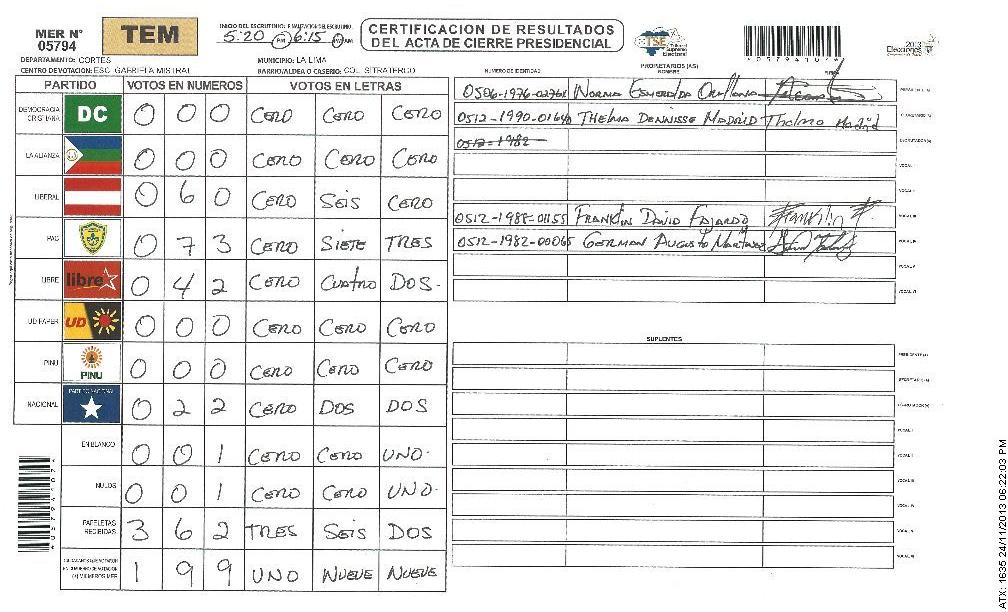 MER N°
05794
TEM
INICIO DEL ESCRUTINIO: FINALIZACION DEL ESCRUTINIO
5:20 PM 6:15 PM AM
CERTIFICACION DE RESULTADOS
DEL ACTA DE CIERRE PRESIDENCIAL
TSE Tribunal Supremo Electoral
Elecciones 2013
DEPARTAMENTO: CORTES
MUNICIPIO: LA LIMA
CENTRO DE VOTACION: ESC. GABRIELA MISTRAL
BARRIO/ALDEA O CASERIO: COL. SITRATERCO
PARTIDO VOTOS EN NUMEROS VOTOS EN LETRAS
DEMOCRACIA CRISTIANA DC 0 0 0 CERO CERO CERO
LA ALIANZA 0 0 0 CERO CERO CERO
LIBERAL 0 6 0 CERO SEIS CERO
PAC 0 7 3 CERO SIETE TRES
LIBRE libre 0 4 2 CERO CUATRO DOS.
UD FAPER UD 0 0 0 CERO CERO CERO
PINU PINU 0 0 0 CERO CERO CERO
NACIONAL PARTIDO NACIONAL 0 2 2 CERO DOS DOS
EN BLANCO 0 0 1 CERO CERO UNO.
NULOS 0 0 1 CERO CERO UNO.
PAPELETAS RECIBIDAS 3 6 2 TRES SEIS DOS
1 9 9 UNO NUEVE NUEVE
NUMERO DE IDENTIDAD
PROPIETARIOS (AS)
NOMBRE
FIRMA
NORMA ESMERALDA Orellana
0512-1990-01640 THELMA DENNISSE MADRID Thelma Madrid
0512-1982
0512-1988-01155 FRANKLIN DAVID FAJARDO
0512-1982-00065 GERMAN AUGUSTO MARTINEZ
SUPLENTES
ATX: 1635 24/11/2013 06:22:03 PM